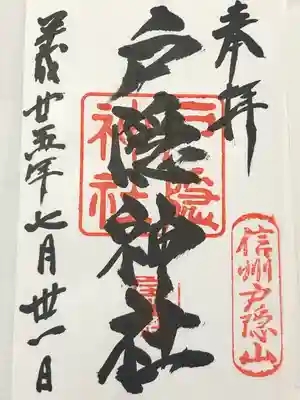 奉拝
信州戸隠山
戸隠神社
戸隠
神社
平成廿五年七月丗一日